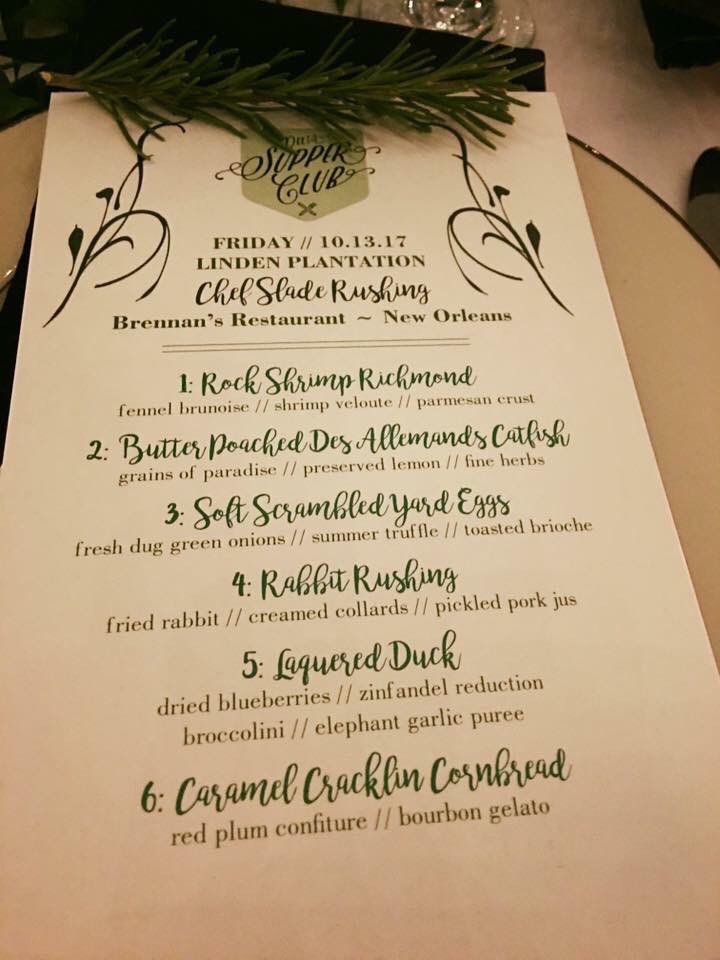 SUPPER
CLUB
FRIDAY // 10.13.17
LINDEN PLANTATION
Chef Slade Rushing
Brennan's Restaurant ~ New Orleans
1: Rock Shrimp Richmond
fennel brunoise // shrimp veloute // parmesan crust
2: Butter Poached Des Allemands Catfish
grains of paradise // preserved lemon // fine herbs
3: Soft Scrambled Yard Eggs
fresh dug green onions // summer truffle // toasted brioche
4: Rabbit Rushing
fried rabbit // creamed collards // pickled pork jus
5: Laquered Duck
dried blueberries // zinfandel reduction
broccolini // elephant garlic puree
6: Caramel Cracklin Cornbread
red plum confiture // bourbon gelato